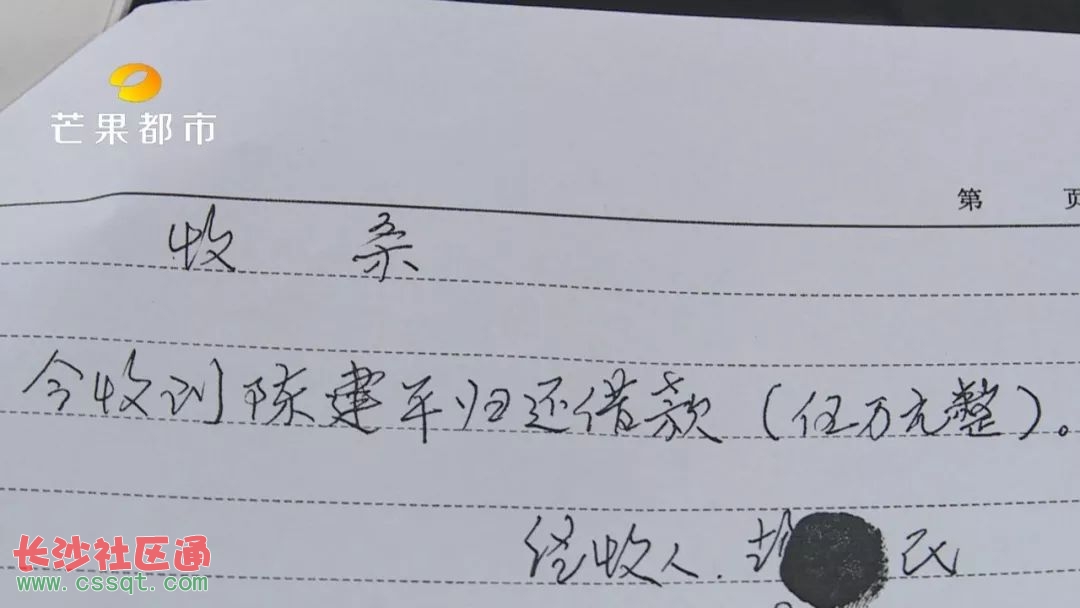 芒果都市
第 页
收条
今收到陈建平归还借款（伍万元整）。
经收人.
民
长沙社区通
www.cssqt.com